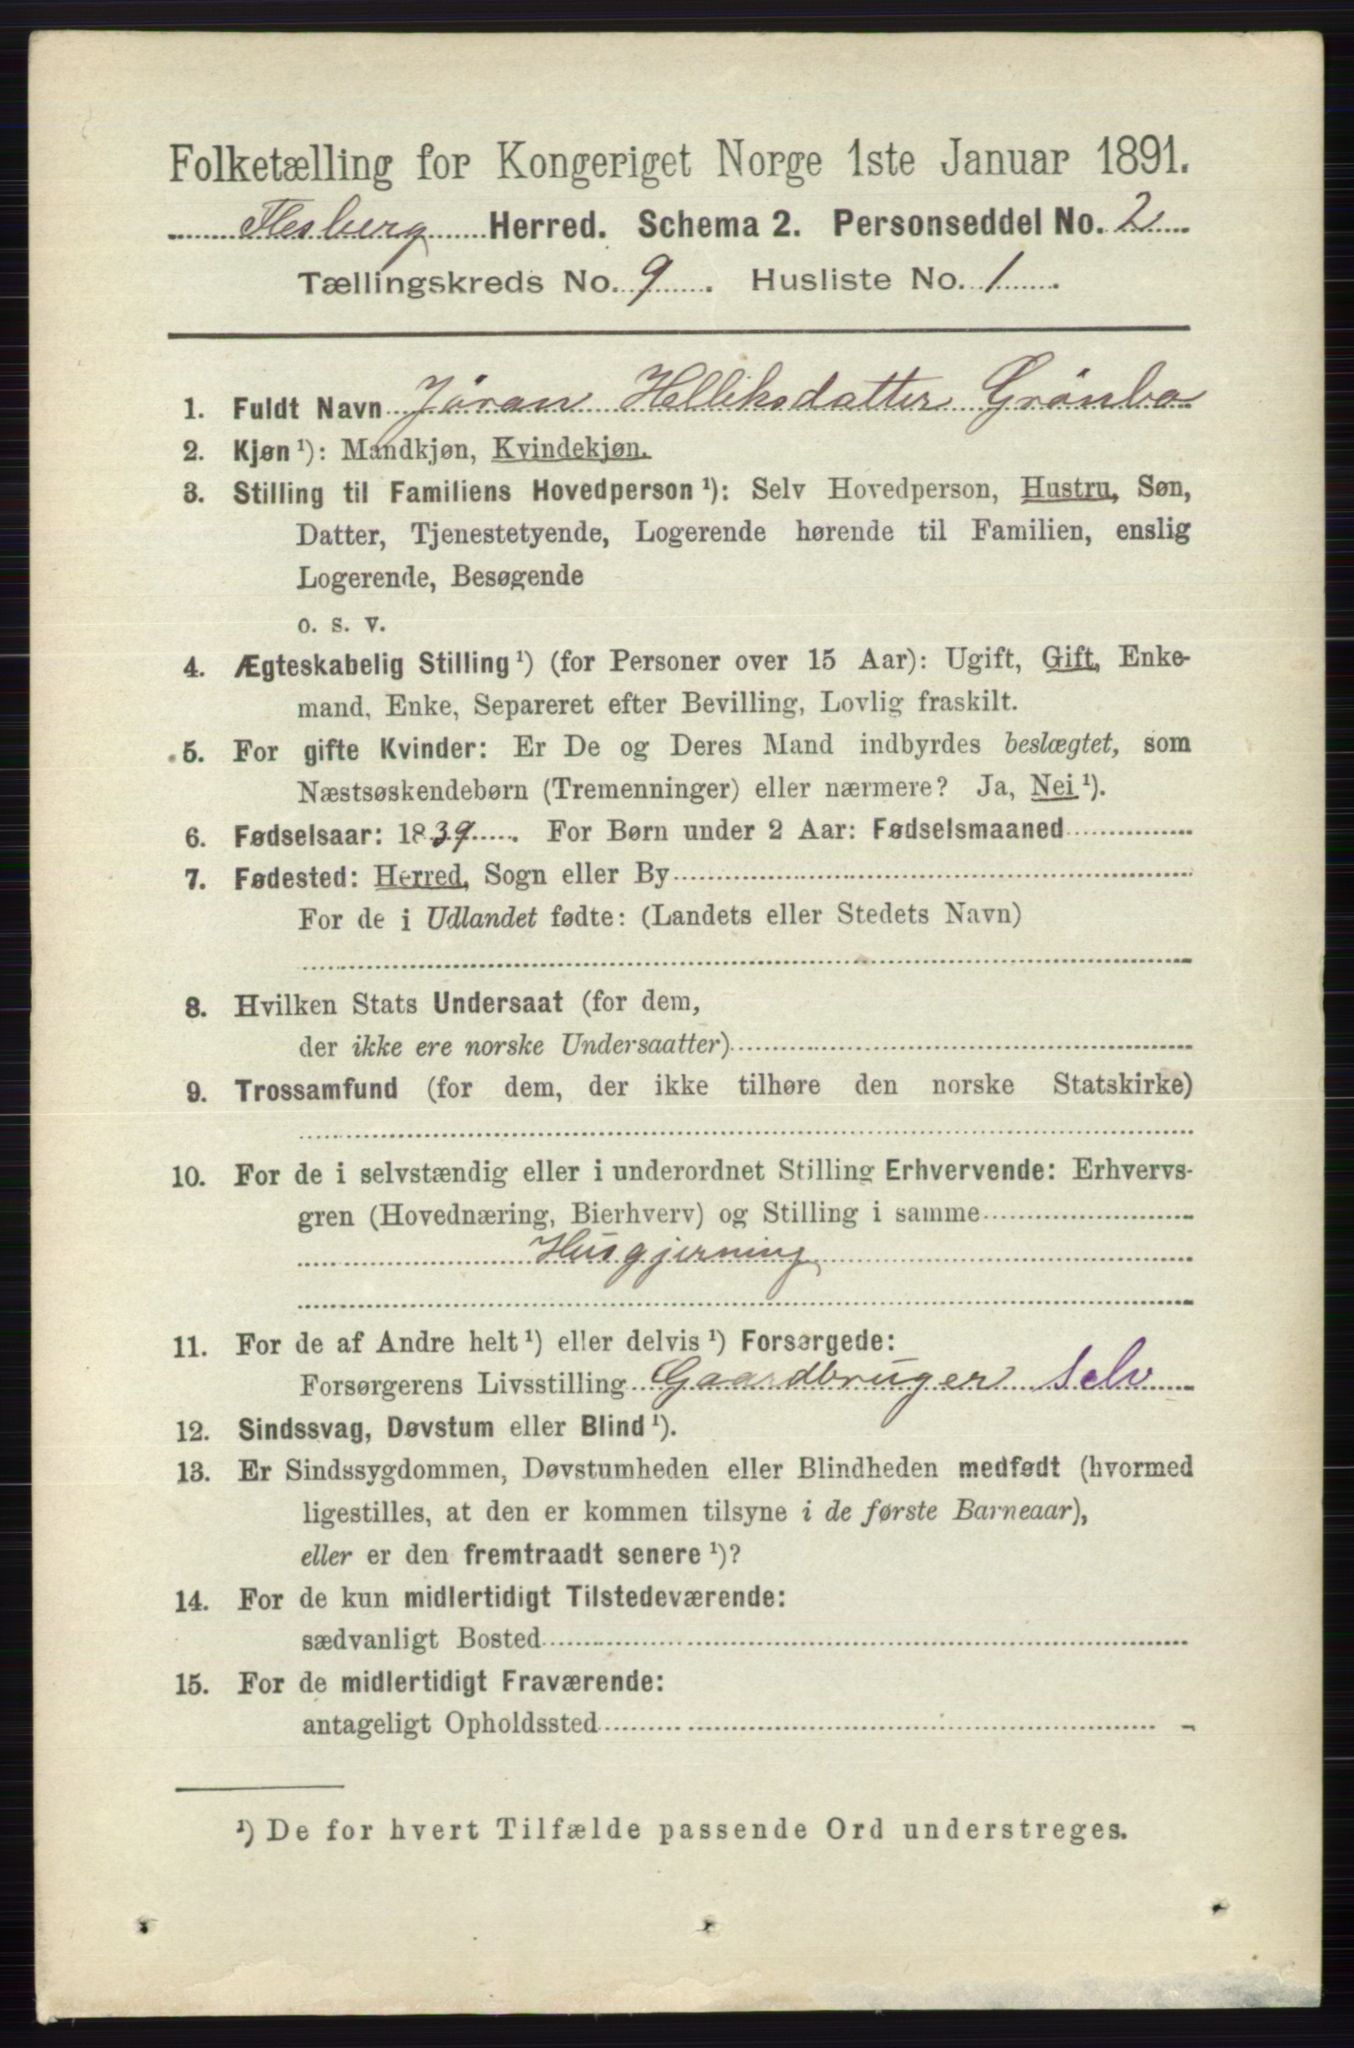 Folketælling for Kongeriget Norge 1ste Januar 1891.
Flesberg Herred. Schema 2. Personseddel No. 2
Tællingskreds No. 9. Husliste No. 1.
1. Fuldt Navn Jøran Helliksdatter Grønbo
2. Kjøn ¹): Mandkjøn, Kvindekjøn.
3. Stilling til Familiens Hovedperson ¹): Selv Hovedperson, Hustru, Søn,
Datter, Tjenestetyende, Logerende hørende til Familien, enslig
Logerende, Besøgende
o. s. v.
4. Ægteskabelig Stilling ¹) (for Personer over 15 Aar): Ugift, Gift, Enke-
mand, Enke, Separeret efter Bevilling, Lovlig fraskilt.
5. For gifte Kvinder: Er De og Deres Mand indbyrdes beslægtet, som
Næstsøskendebørn (Tremenninger) eller nærmere? Ja, Nei ¹).
6. Fødselsaar: 1839. For Børn under 2 Aar: Fødselsmaaned
7. Fødested: Herred, Sogn eller By
For de i Udlandet fødte: (Landets eller Stedets Navn)
8. Hvilken Stats Undersaat (for dem,
der ikke ere norske Undersaatter)
9. Trossamfund (for dem, der ikke tilhøre den norske Statskirke)
10. For de i selvstændig eller i underordnet Stilling Erhvervende: Erhvervs-
gren (Hovednæring, Bierhverv) og Stilling i samme
Husgjerning
11. For de af Andre helt ¹) eller delvis ¹) Forsørgede:
Forsørgerens Livsstilling Gaardbruger selv
12. Sindssvag, Døvstum eller Blind ¹).
13. Er Sindssygdommen, Døvstumheden eller Blindheden medfødt (hvormed
ligestilles, at den er kommen tilsyne i de første Barneaar),
eller er den fremtraadt senere ¹)?
14. For de kun midlertidigt Tilstedeværende:
sædvanligt Bosted
15. For de midlertidigt Fraværende:
antageligt Opholdssted
¹) De for hvert Tilfælde passende Ord understreges.